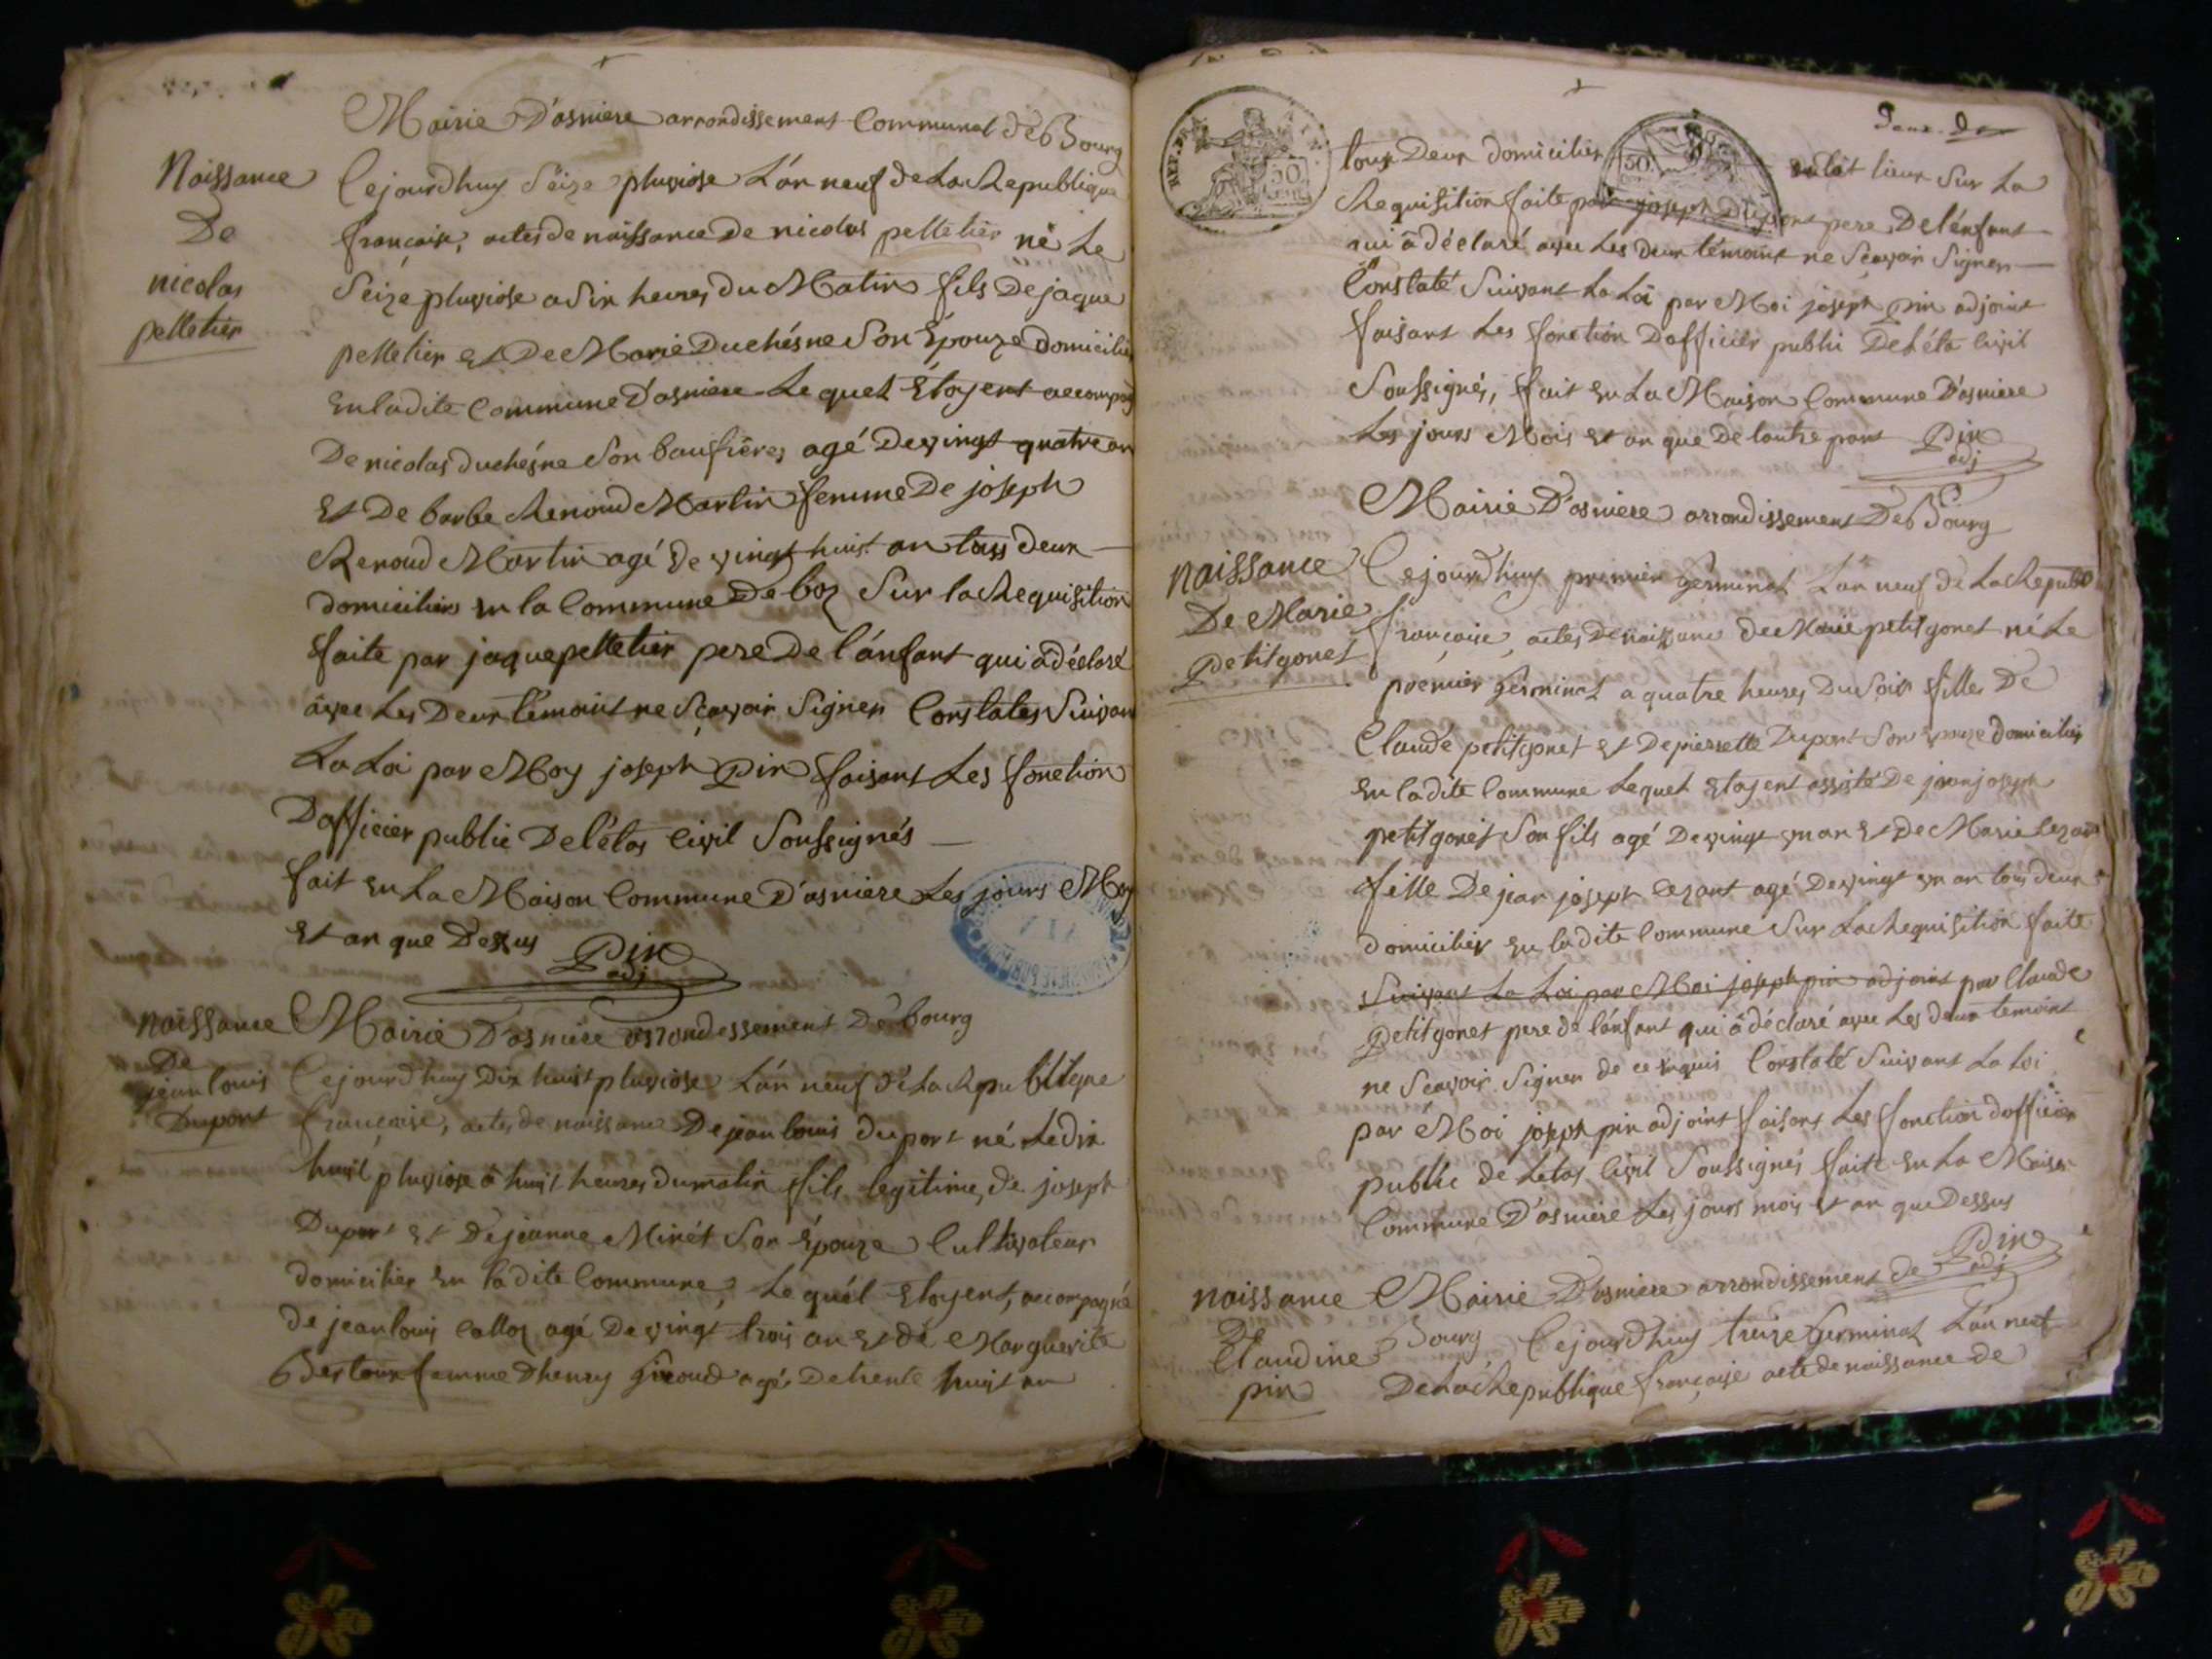 Mairie D'asniere arrondissement Communal de Bourg
Naissance
De
nicolas
pelletier
Cejourdhuy Seize pluviose L'an neuf de La Republique
françaisse, actes de naissance de nicolas pelletier né Le
Seize pluviose a Six heures du Matin fils De jaque
pelletier et De Marie Duchésne Son Épouze domicilie
en ladite Commune D'asniere Le quel Étoyent accompag
De nicolas duchésne Son baufrères agé De vingt quatre an
et De barbe Renoud Martin femme De joseph
Renoud Martin agé De vingt huit an tous deux
domiciliés en la Commune De boz Sur la Requisition
faite par jaque pelletier pere De l'ánfant qui a déclaré
avec Les Deux témoint ne Scavoir Signer Constates Suivan
La Loi par Moy joseph Pin faisant Les fonction
D'officier public De l'étas Civil Soussignés
fait en La Maison Commune D'asniere Les jours Moy
et an que Dessus Pin
adj
naissance
De
jean louis
Duport
Mairie D'asniere arrondessement De bourg
Cejourdhuy Dix huit pluviose L'an neuf de La Republique
française, actes de naissance De jean louis duport né Le dix
huit pluviose á huit heures du matin fils legitime, de joseph
Duport et De jeanne Minét Son Épouze Cultivateur
domicilier en ladite Commune, Le quél Etoyent, accompagné
de jean louis Calloz agé De vingt trois an et de Marguerite
femme D'henry Giroud agé De trente huit an
REP. FRA.
50
50
Deux.
tous Deux domicilier audit lieux Sur La
Requisition faite par joseph Duport pere De l'énfant
qui á déclaré avec Les deux témoint ne Scavoir Signer
Constaté Suivant La Loi par Moi joseph Pin adjoint
faisant Les fonction D'officier publi De L'éta Civil
Soussignés, fait en La Maison Commune D'asniere
Les jours Mois et an que De lautre part Pin
adj
Mairie D'asniere arrondissement De Bourg
naissance
De Marie
Petitgonet
Cejourdhuy premier germinal L'an neuf de La Republi
française, actes De naissance de Marie petitgonet né Le
premier germinal a quatre heures Du Soir fille De
Claude petitgonet et De pierrette Duport Son epouze domicilier
en ladite Commune Lequel Etoyent assisté De jean joseph
petitgonet Son fils agé De vingt un an et de Marie Lezant
fille De jean joseph Lezant agé De vingt un an tous deux
domicilier en ladite Commune Sur La Requisition faite
Suivant La Loi par Moi joseph pin adjoint par Claude
petitgonet pere de l'énfant qui á déclaré avec Les deux temoint
ne Scavoir Signer de ce enquis Constaté Suivant La Loi
par Moi joseph pin adjoint faisant Les fonction dofficier
public de Letas Civil Soussignés fait en La Maison
Commune D'asniere Les jours mois et an que Dessus
Pin
adj
naissance
De
Claudine
pin
Mairie D'asniere arrondissement de
Bourg Cejourdhuy treize Germinal L'an neuf
De La Republique française acte de naissance de